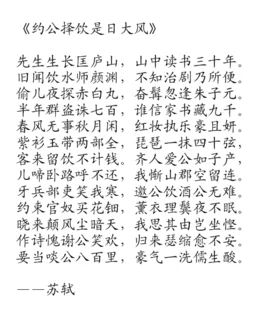 《约公择饮是日大风》
先生生长匡庐山，山中读书三十年。
旧闻饮水师颜渊，不知治剧乃所便。
偷儿夜探赤白丸，奋髯忽逢朱子元。
半年群盗诛七百，谁信家书藏九千。
春风无事秋月闲，红妆执乐豪且妍。
紫衫玉带两部全，琵琶一抹四十弦。
客来留饮不计钱。齐人爱公如子产，
儿啼卧路呼不还，我惭山郡空留连。
牙兵部吏笑我寒，邀公饮酒公无难。
约束官奴买花钿，薰衣理鬓夜不眠。
晓来颠风尘暗天，我思其由岂坐悭。
作诗愧谢公笑欢，归来瑟缩愈不安。
要当啖公八百里，豪气一洗儒生酸。
——苏轼